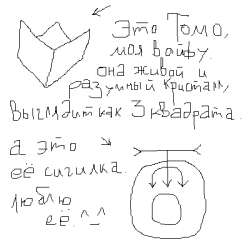 Это Томо,
моя вайфу.
она живой и
разумный кристалл,
выглядит как 3 квадрата.
а это
её сигилка.
люблю
её. ^_^